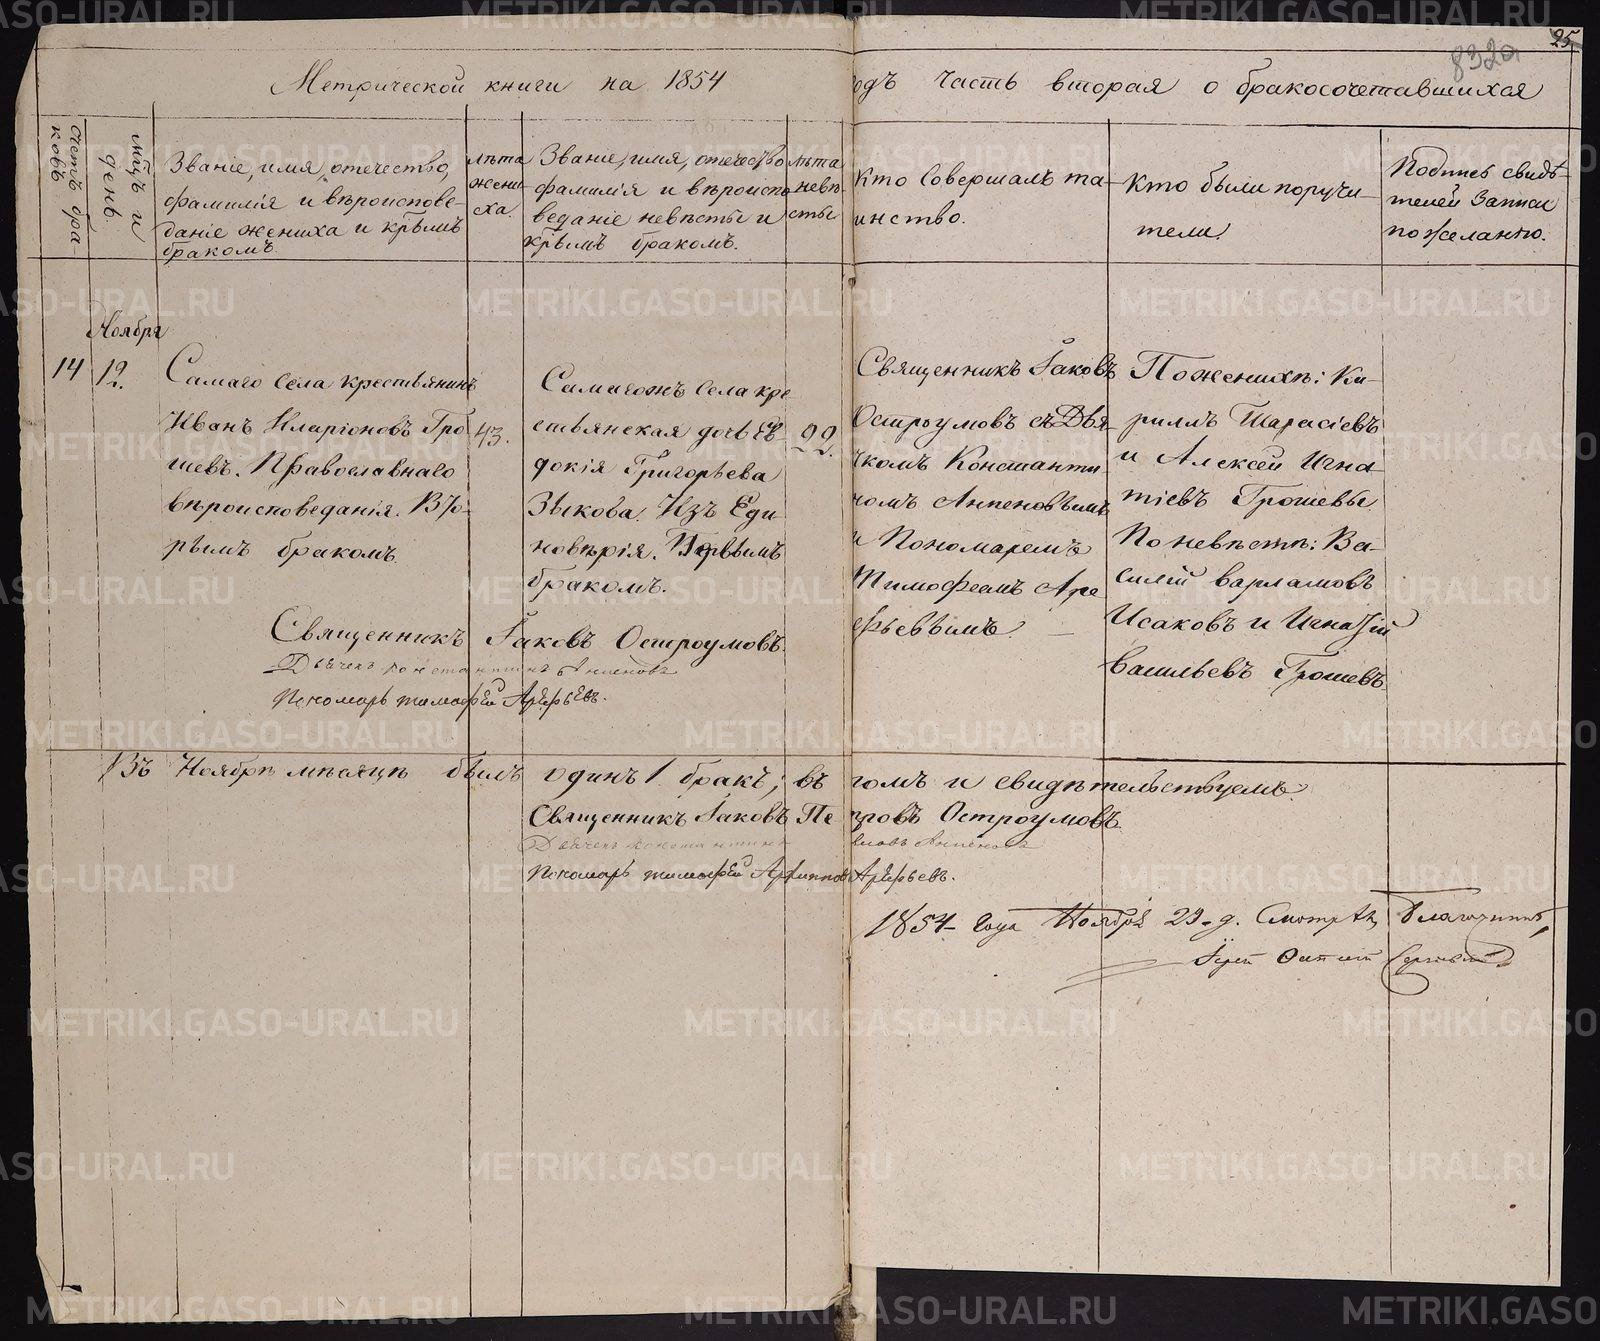 25
832а
Метрической книги на 1854 годъ часть вторая о бракосочетавшихся
Счетъ бра-
ковъ
мцъ и
день.
Званіе, имя, отечество,
фамилія и вѣроиспове-
даніе жениха и крѣмъ
бракомъ.
лѣта
жени-
ха.
Званіе, имя, отечество
фамилія и вѣроиспо
веданіе невѣсты и
крѣмъ бракомъ.
лѣта
невѣ-
сты
Кто Совершалъ та-
инство.
Кто были поручи-
тели.
Подпись свидѣ-
телей Записи
по желанію.
Ноября
14
12.
Самаго Села крестьянинъ
Иванъ Иларіоновъ Гро
шевъ. Православнаго
вѣроисповеданія. Вто-
рымъ бракомъ.
43.
Самагожъ Села кре
стьянская дочь Ев-
докія Григорьева
Зыкова. Изъ Еди-
новѣрія. Первымъ
бракомъ.
22.
Священникъ Іаковъ
Остроумовъ съ Дья-
чкомъ Константи-
номъ Анпеновымъ
и Пономаремъ
Тимофеемъ Аре
фьевымъ.
По женихѣ: Ки-
рилъ Тарасіевъ
и Алексей Игна-
тіевъ Грошевы
По невѣстѣ: Ва-
силій Варламовъ
Исаковъ и Игнатій
Васильевъ Грошевъ.
Священникъ Іаковъ Остроумовъ.
Дьячекъ Константинъ Анпеновъ
Пономарь тимофей Арефьевъ.
Въ Ноябрѣ мѣсяцѣ былъ одинъ 1 бракъ; въ томъ и свидѣтельствуемъ.
Священникъ Іаковъ Петровъ Остроумовъ.
Дьячекъ Константинъ Анпеновъ
Пономарь тимофей Архиповъ Арефьевъ.
1854 года Ноября 29 д. Смотрѣлъ Благочинный,
Іерей
METRIKI.GASO-URAL.RU